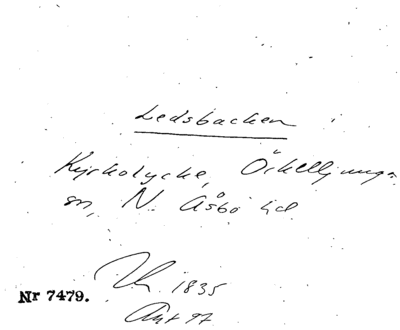 Ledsbacken
Kyrkolycke, Örkelljunga
sn, N. Åsbo hd
1835
Nr 7479.